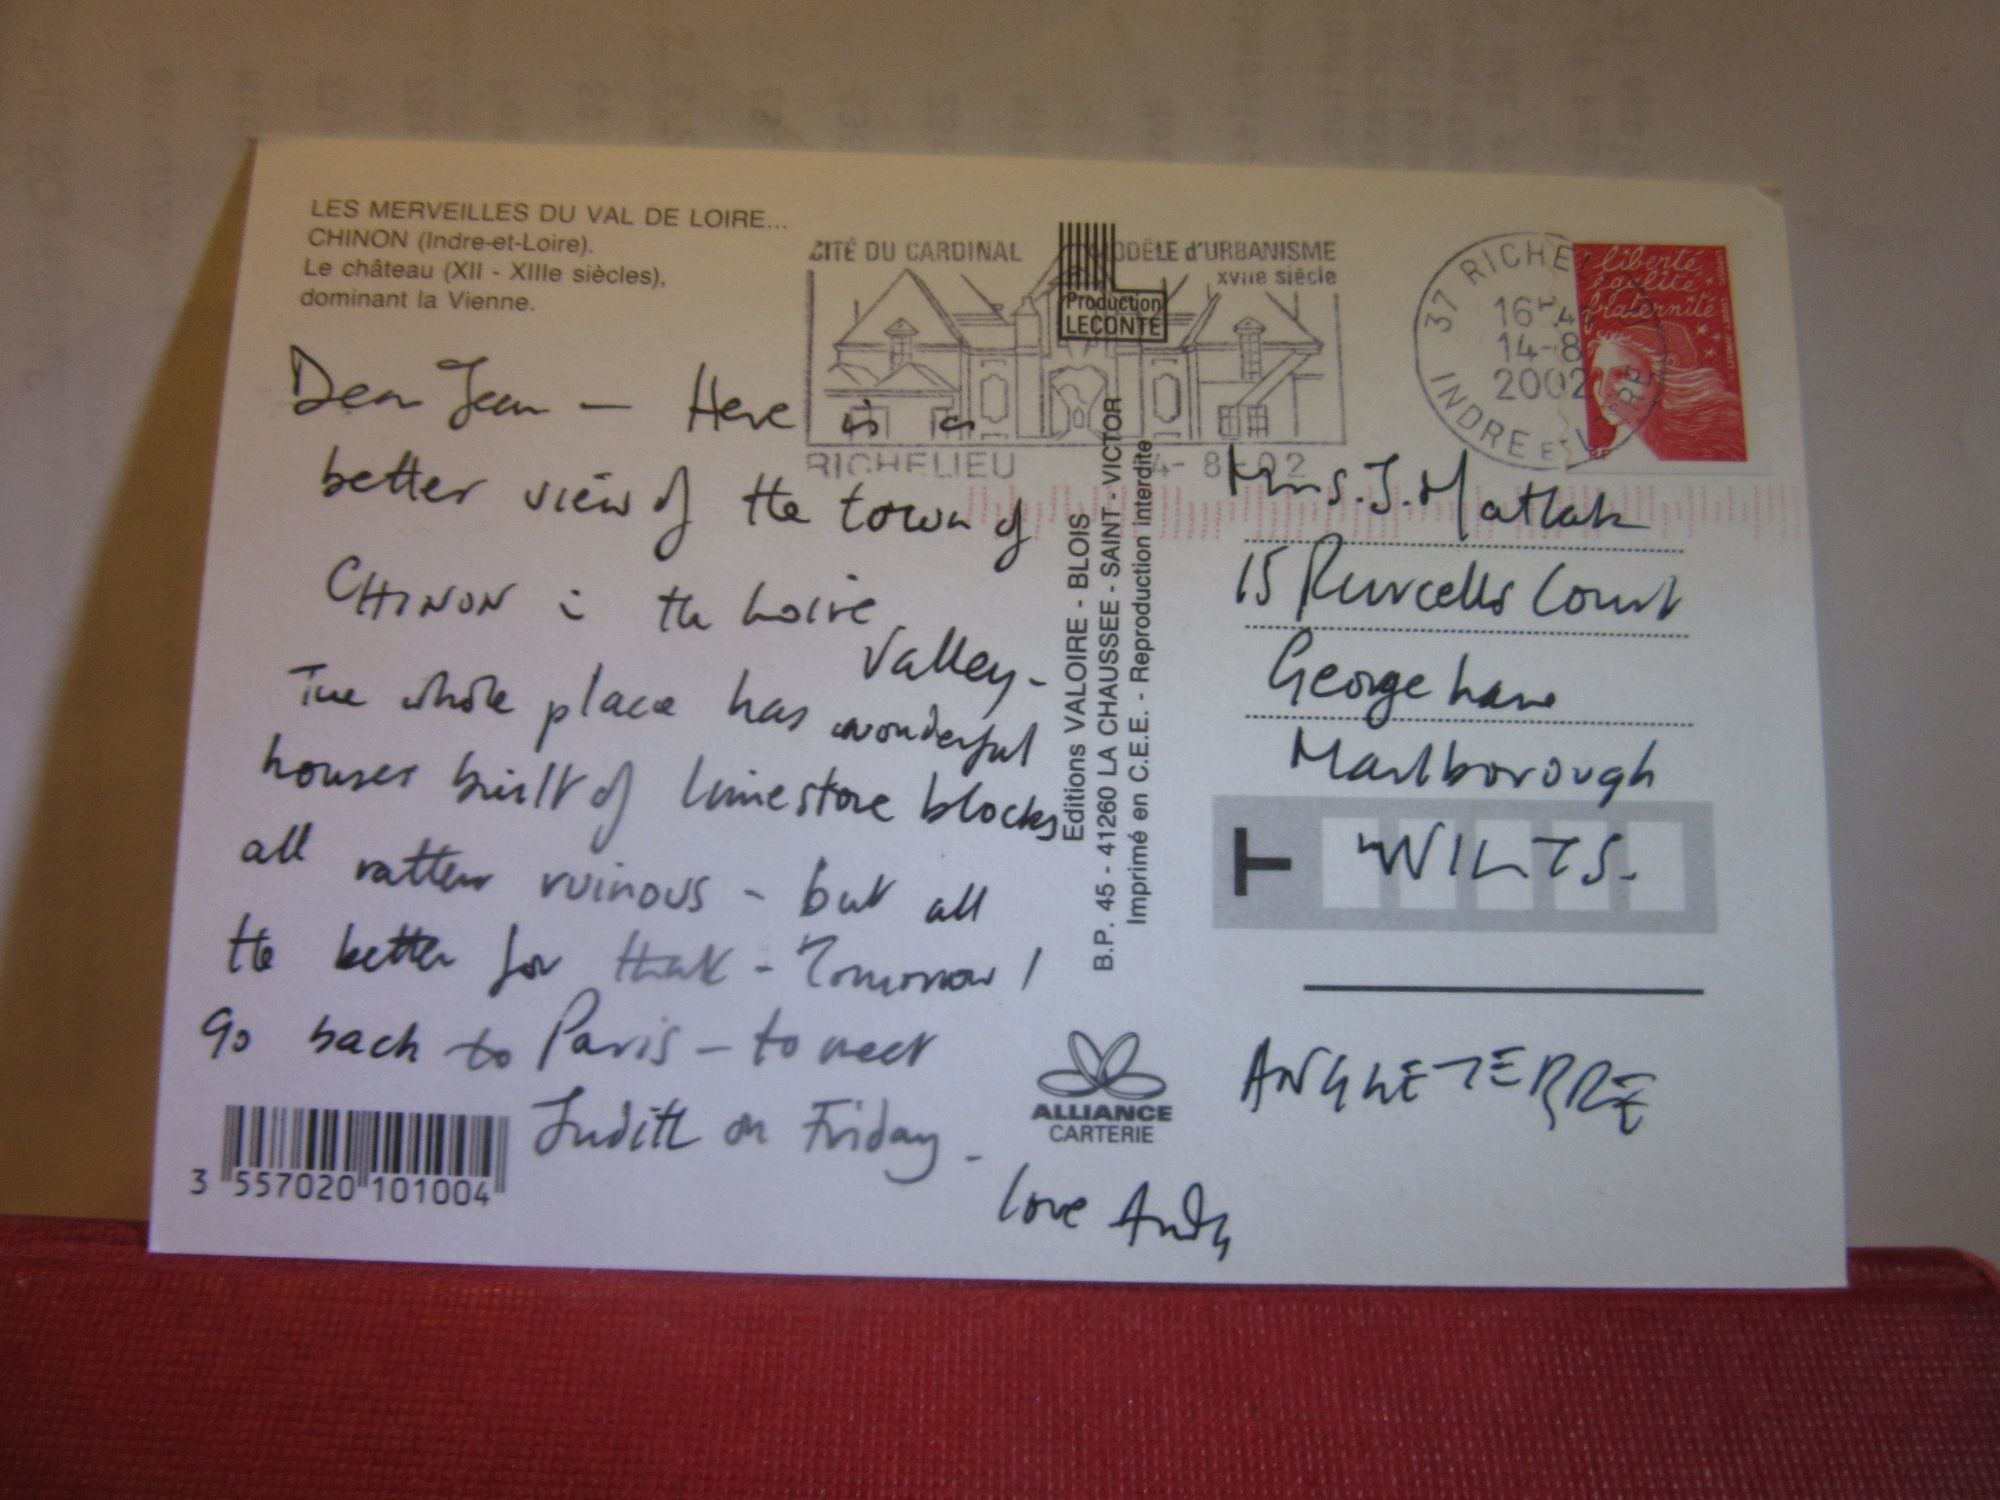 LES MERVEILLES DU VAL DE LOIRE...
CHINON (Indre-et-Loire).
Le château (XII - XIIIe siècles),
dominant la Vienne.
CITÉ DU CARDINAL
MODÈLE d'URBANISME
XVIIe siècle
Production
LECONTE
RICHELIEU
4-8-02
37 RICHE
16
14-8
2002
INDRE ET L RE
liberté
égalité
fraternité
RF
Dear Jean – Here is a
better view of the town of
CHINON i the Loire
Valley-
The whole place has wonderful
houses built of limestone blocks
all rather ruinous - but all
the better for that - Tomorrow I
go back to Paris – to meet
Judith on Friday -
love Andy
Editions VALOIRE - BLOIS
B.P. 45 - 41260 LA CHAUSSEE - SAINT - VICTOR
Imprimé en C.E.E. - Reproduction interdite
Mrs. J. Matlak
15 Purcells Court
George Lane
Marlborough
T
WILTS.
ANGLETERRE
ALLIANCE
CARTERIE
3 557020 101004